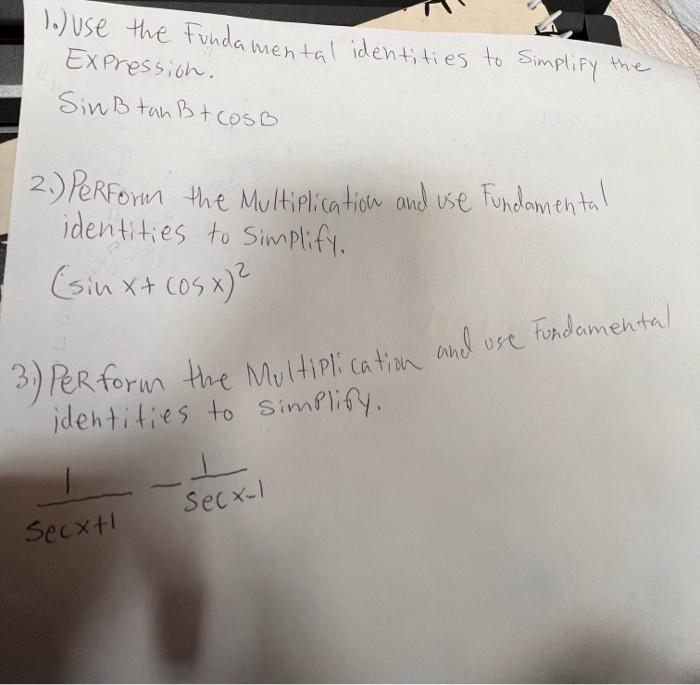 1.) Use the Fundamental identities to Simplify the
Expression.
Sin B tan B + cos B
2.) PERForm the Multiplication and use Fundamental
identities to Simplify.
(sin x + cos x)²
3.) PERform the Multiplication and use Fundamental
identities to simplify.
1/(Sec x+1) - 1/(Sec x-1)